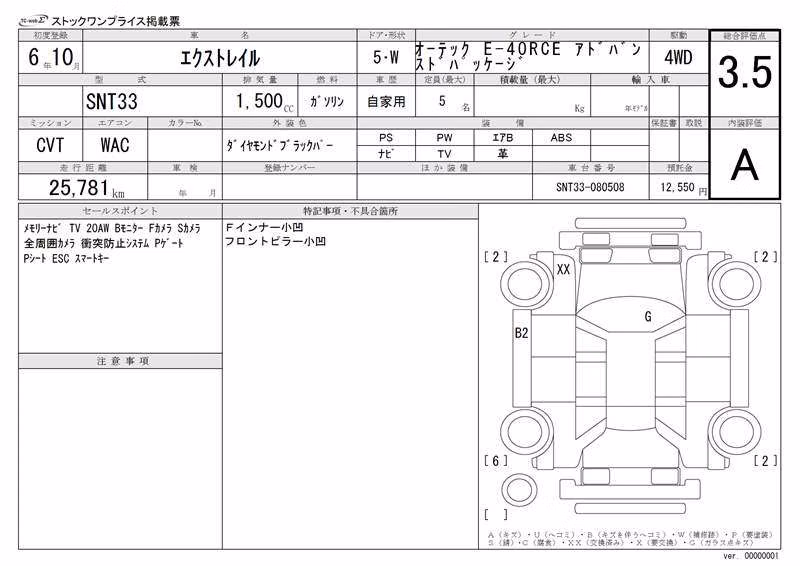 TC-webΣ ストックワンプライス掲載票
初度登録 車名 ドア・形状 グレード 駆動 総合評価点
6年10月 エクストレイル 5・W オーテック E-4ORCE アドバンストパッケージ 4WD 3.5
型式 排気量 燃料 車歴 定員(最大) 積載量(最大) 輸入車
SNT33 1,500CC ガソリン 自家用 5名 Kg 年モデル
ミッション エアコン カラーNo. 外装色 装備 保証書 取説 内装評価
CVT WAC ダイヤモンドブラックパー PS PW エアB ABS A
ナビ TV 革
走行距離 車検 登録ナンバー ほか装備 車台番号 預託金
25,781km 年 月 SNT33-080508 12,550円
セールスポイント 特記事項・不具合箇所
メモリーナビ TV 20AW Bモニター Fカメラ Sカメラ
全周囲カメラ 衝突防止システム Pゲート
Pシート ESC スマートキー
Fインナー小凹
フロントピラー小凹
注意事項
[2] XX [2]
G
B2
[6] [2]
[ ]
A(キズ)・U(ヘコミ)・B(キズを伴うヘコミ)・W(補修跡)・P(要塗装)
S(錆)・C(腐食)・XX(交換済み)・X(要交換)・G(ガラス点キズ)
ver. 00000001